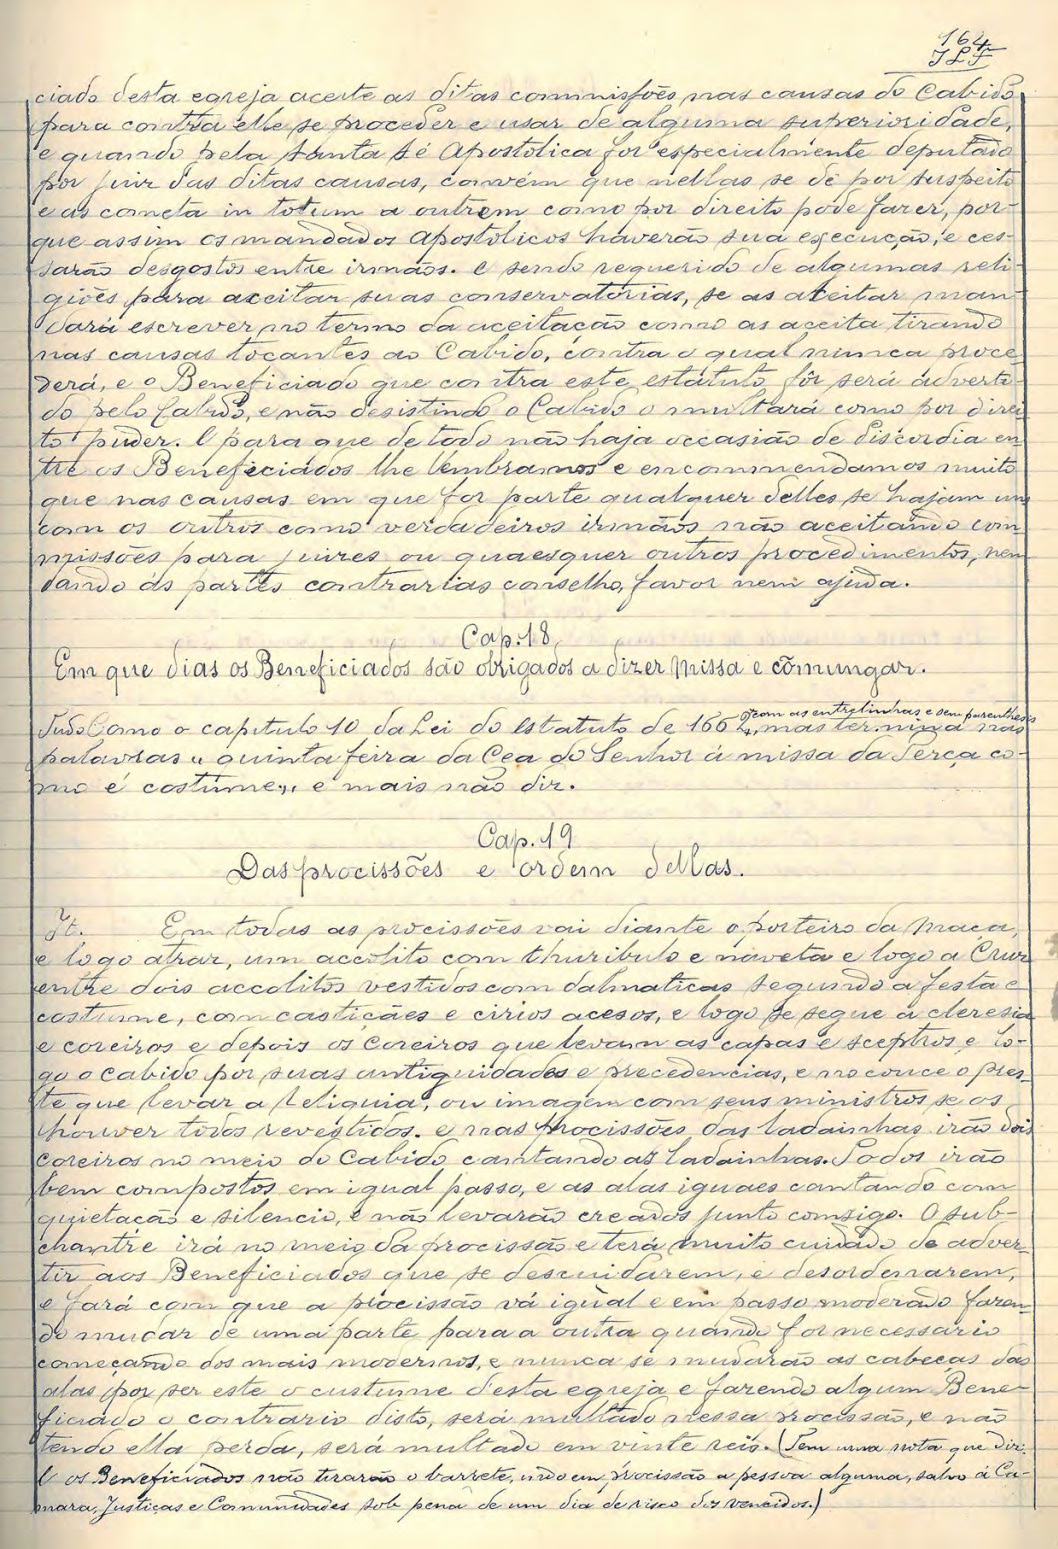 164
JLF
ciado desta egreja aceite as ditas commissões nas causas do Cabido
para contra elle se proceder e usar de alguma superioridade,
e quando pela santa sé Apostolica for especialmente deputado
por juiz das ditas causas, convém que nellas se dê por suspeito
e as cometa in totum a outrem como por direito póde fazer, por-
que assim os mandados apostolicos haverão sua execução, e ces-
sarão desgostos entre irmãos. e sendo requerido de algumas reli-
giões para aceitar suas conservatorias, se as aceitar man-
dará escrever no termo da aceitação como as aceita tirando
nas causas tocantes ao Cabido, contra o qual nunca proce-
derá, e o Beneficiado que contra este estatuto fôr será adverti-
do pelo Cabido, e não desistindo o Cabido o multará como por direi
to puder. E para que de todo não haja occasião de discordia en-
tre os Beneficiados lhe lembramos e encommendamos muito
que nas causas em que for parte qualquer delles se hajam uns
com os outros como verdadeiros irmãos não aceitando com-
missões para juizes ou quaesquer outros procedimentos, nem
dando ás partes contrarias conselho, favor nem ajuda.
Cap. 18
Em que dias os Beneficiados são obrigados a dizer Missa e cõmungar.
com as entrelinhas e sem parenthesis
Tudo Como o capitulo 10 da Lei do Estatuto de 1662, mas termina nas
palavras „ quinta feira da Cea do Senhor á missa da Terça co-
mo é costume„, e mais não diz.
Cap. 19
Das procissões e ordem dellas.
It. Em todas as procissões vai diante o porteiro da Maça,
e logo atraz, um accolito com thuribulo e naveta e logo a Cruz
entre dois accolitos vestidos com dalmaticas segundo a festa e
costume, com castiçães e cirios acesos, e logo se segue a cleresia
e coreiros e depois os Coreiros que levam as capas e sceptros e lo-
go o Cabido por suas antiguidades e precedencias, e no couce o pres-
te que levar a reliquia, ou imagem com seus ministros se os
houver todos revestidos. e nas procissões das ladainhas irão dois
Coreiros no meio do Cabido cantando as ladainhas. Todos irão
bem compostos em igual passo, e as alas iguaes cantando com
quietação e silencio, e não levarão creados junto comsigo. O sub-
chantre irá no meio da procissão e terá muito cuidado de adver-
tir aos Beneficiados que se descuidarem, e desordenarem,
e fará com que a procissão vá igual e em passo moderado fazen-
do mudar de uma parte para a outra quando for necessario
começando dos mais modernos, e nunca se mudarão as cabeças das
alas por ser este o custume desta egreja e fazendo algum Bene-
ficiado o contrario disto, será multado nessa procissão, e não
tendo ella perda, será multado em vinte reis. (Tem uma nota que diz:
E os Beneficiados não tirarão o barrete, indo em procissão a pessoa alguma, salvo á Ca-
mara, Justiças e Comunidades sob pena de um dia de risco dos vencidos.)